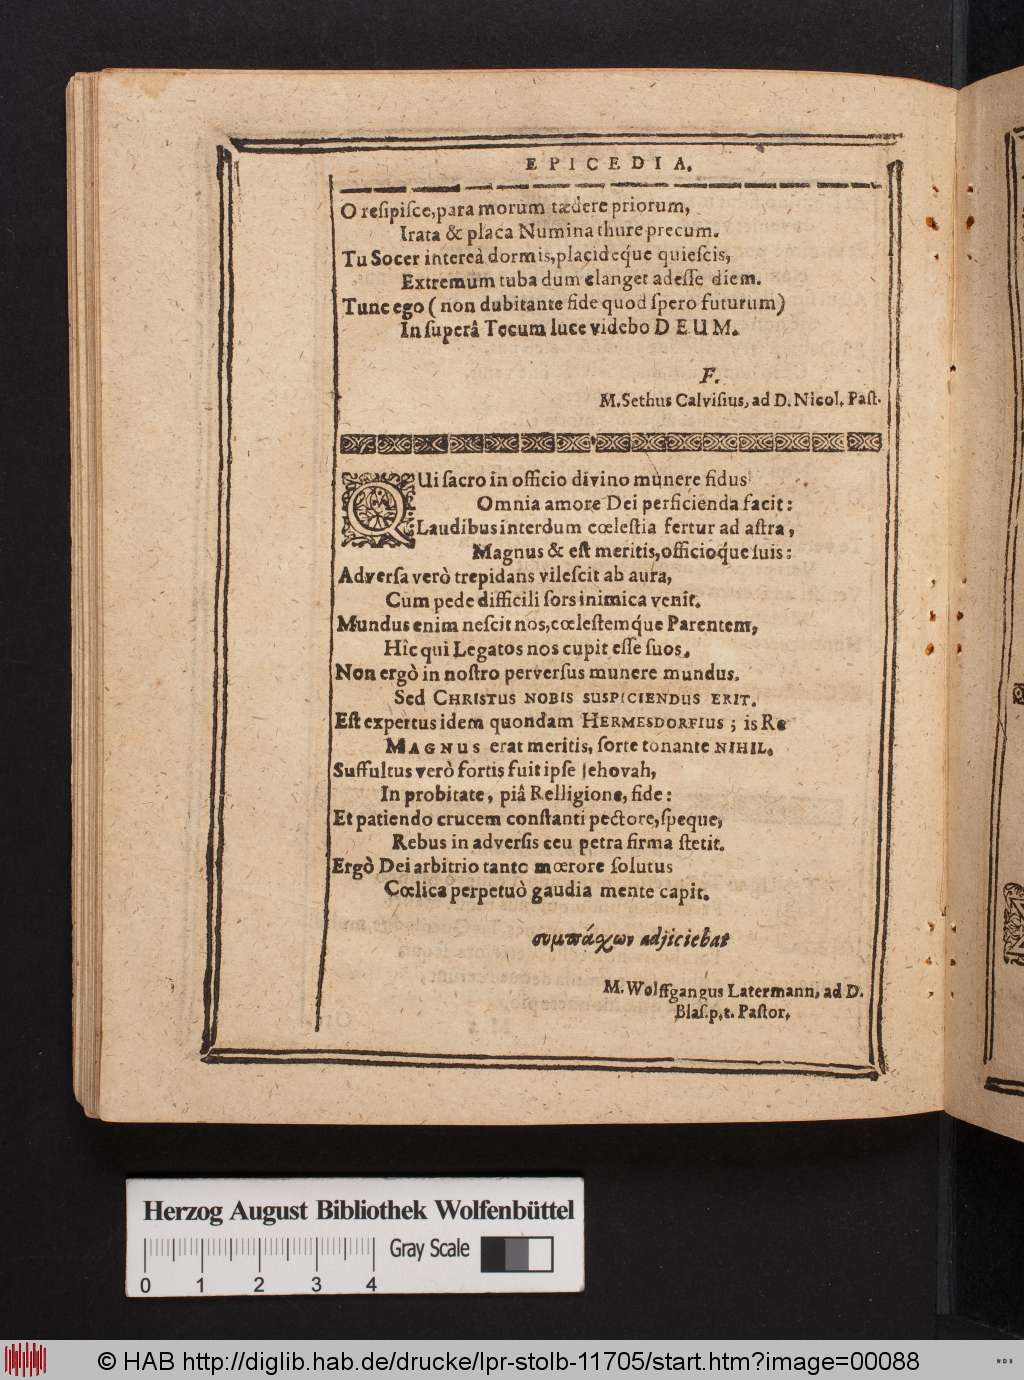 EPICEDIA.
O resipisce, para morum tædere priorum,
Irata & placa Numina thure precum.
Tu Socer intereà dormis, placideq́ue quiescis,
Extremum tuba dum clanget adesse diem.
Tunc ego ( non dubitante fide quod spero futurum)
In superâ Tecum luce videbo DEUM.
F.
M. Sethus Calvisius, ad D. Nicol. Past.
QUi sacro in officio divino munere fidus
Omnia amore Dei perficienda facit:
Laudibus interdum cœlestia fertur ad astra,
Magnus & est meritis, officioq́ue suis:
Adversa verò trepidans vilescit ab aura,
Cum pede difficili sors inimica venit.
Mundus enim nescit nos, cœlestemq́ue Parentem,
Hîc qui Legatos nos cupit esse suos.
Non ergò in nostro perversus munere mundus.
Sed CHRISTUS NOBIS SUSPICIENDUS ERIT.
Est expertus idem quondam HERMESDORFIUS; is Re
MAGNUS erat meritis, sorte tonante NIHIL.
Suffultus verò fortis fuit ipse Jehovah,
In probitate, piâ Relligione, fide:
Et patiendo crucem constanti pectore, speque,
Rebus in adversis ceu petra firma stetit.
Ergò Dei arbitrio tanto mœrore solutus
Cœlica perpetuò gaudia mente capit.
συμπάχων adjiciebat
M. Wolffgangus Latermann, ad D.
Blas. p. t. Pastor.
Herzog August Bibliothek Wolfenbüttel
Gray Scale
0 1 2 3 4
© HAB http://diglib.hab.de/drucke/lpr-stolb-11705/start.htm?image=00088